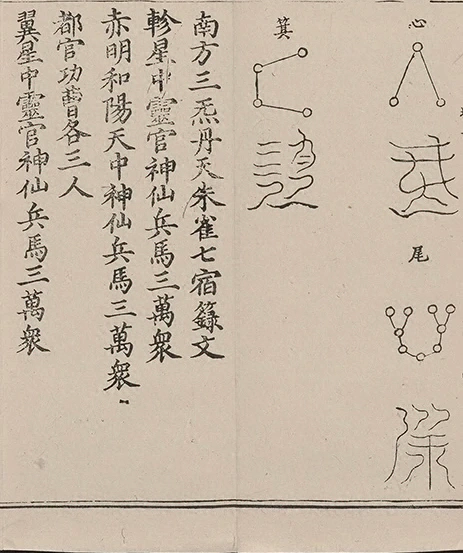 心
尾
箕
南方三炁丹天朱雀七宿籙文
軫星中靈官神仙兵馬三萬衆
赤明和陽天中神仙兵馬三萬衆
都官功曹各三人
翼星中靈官神仙兵馬三萬衆